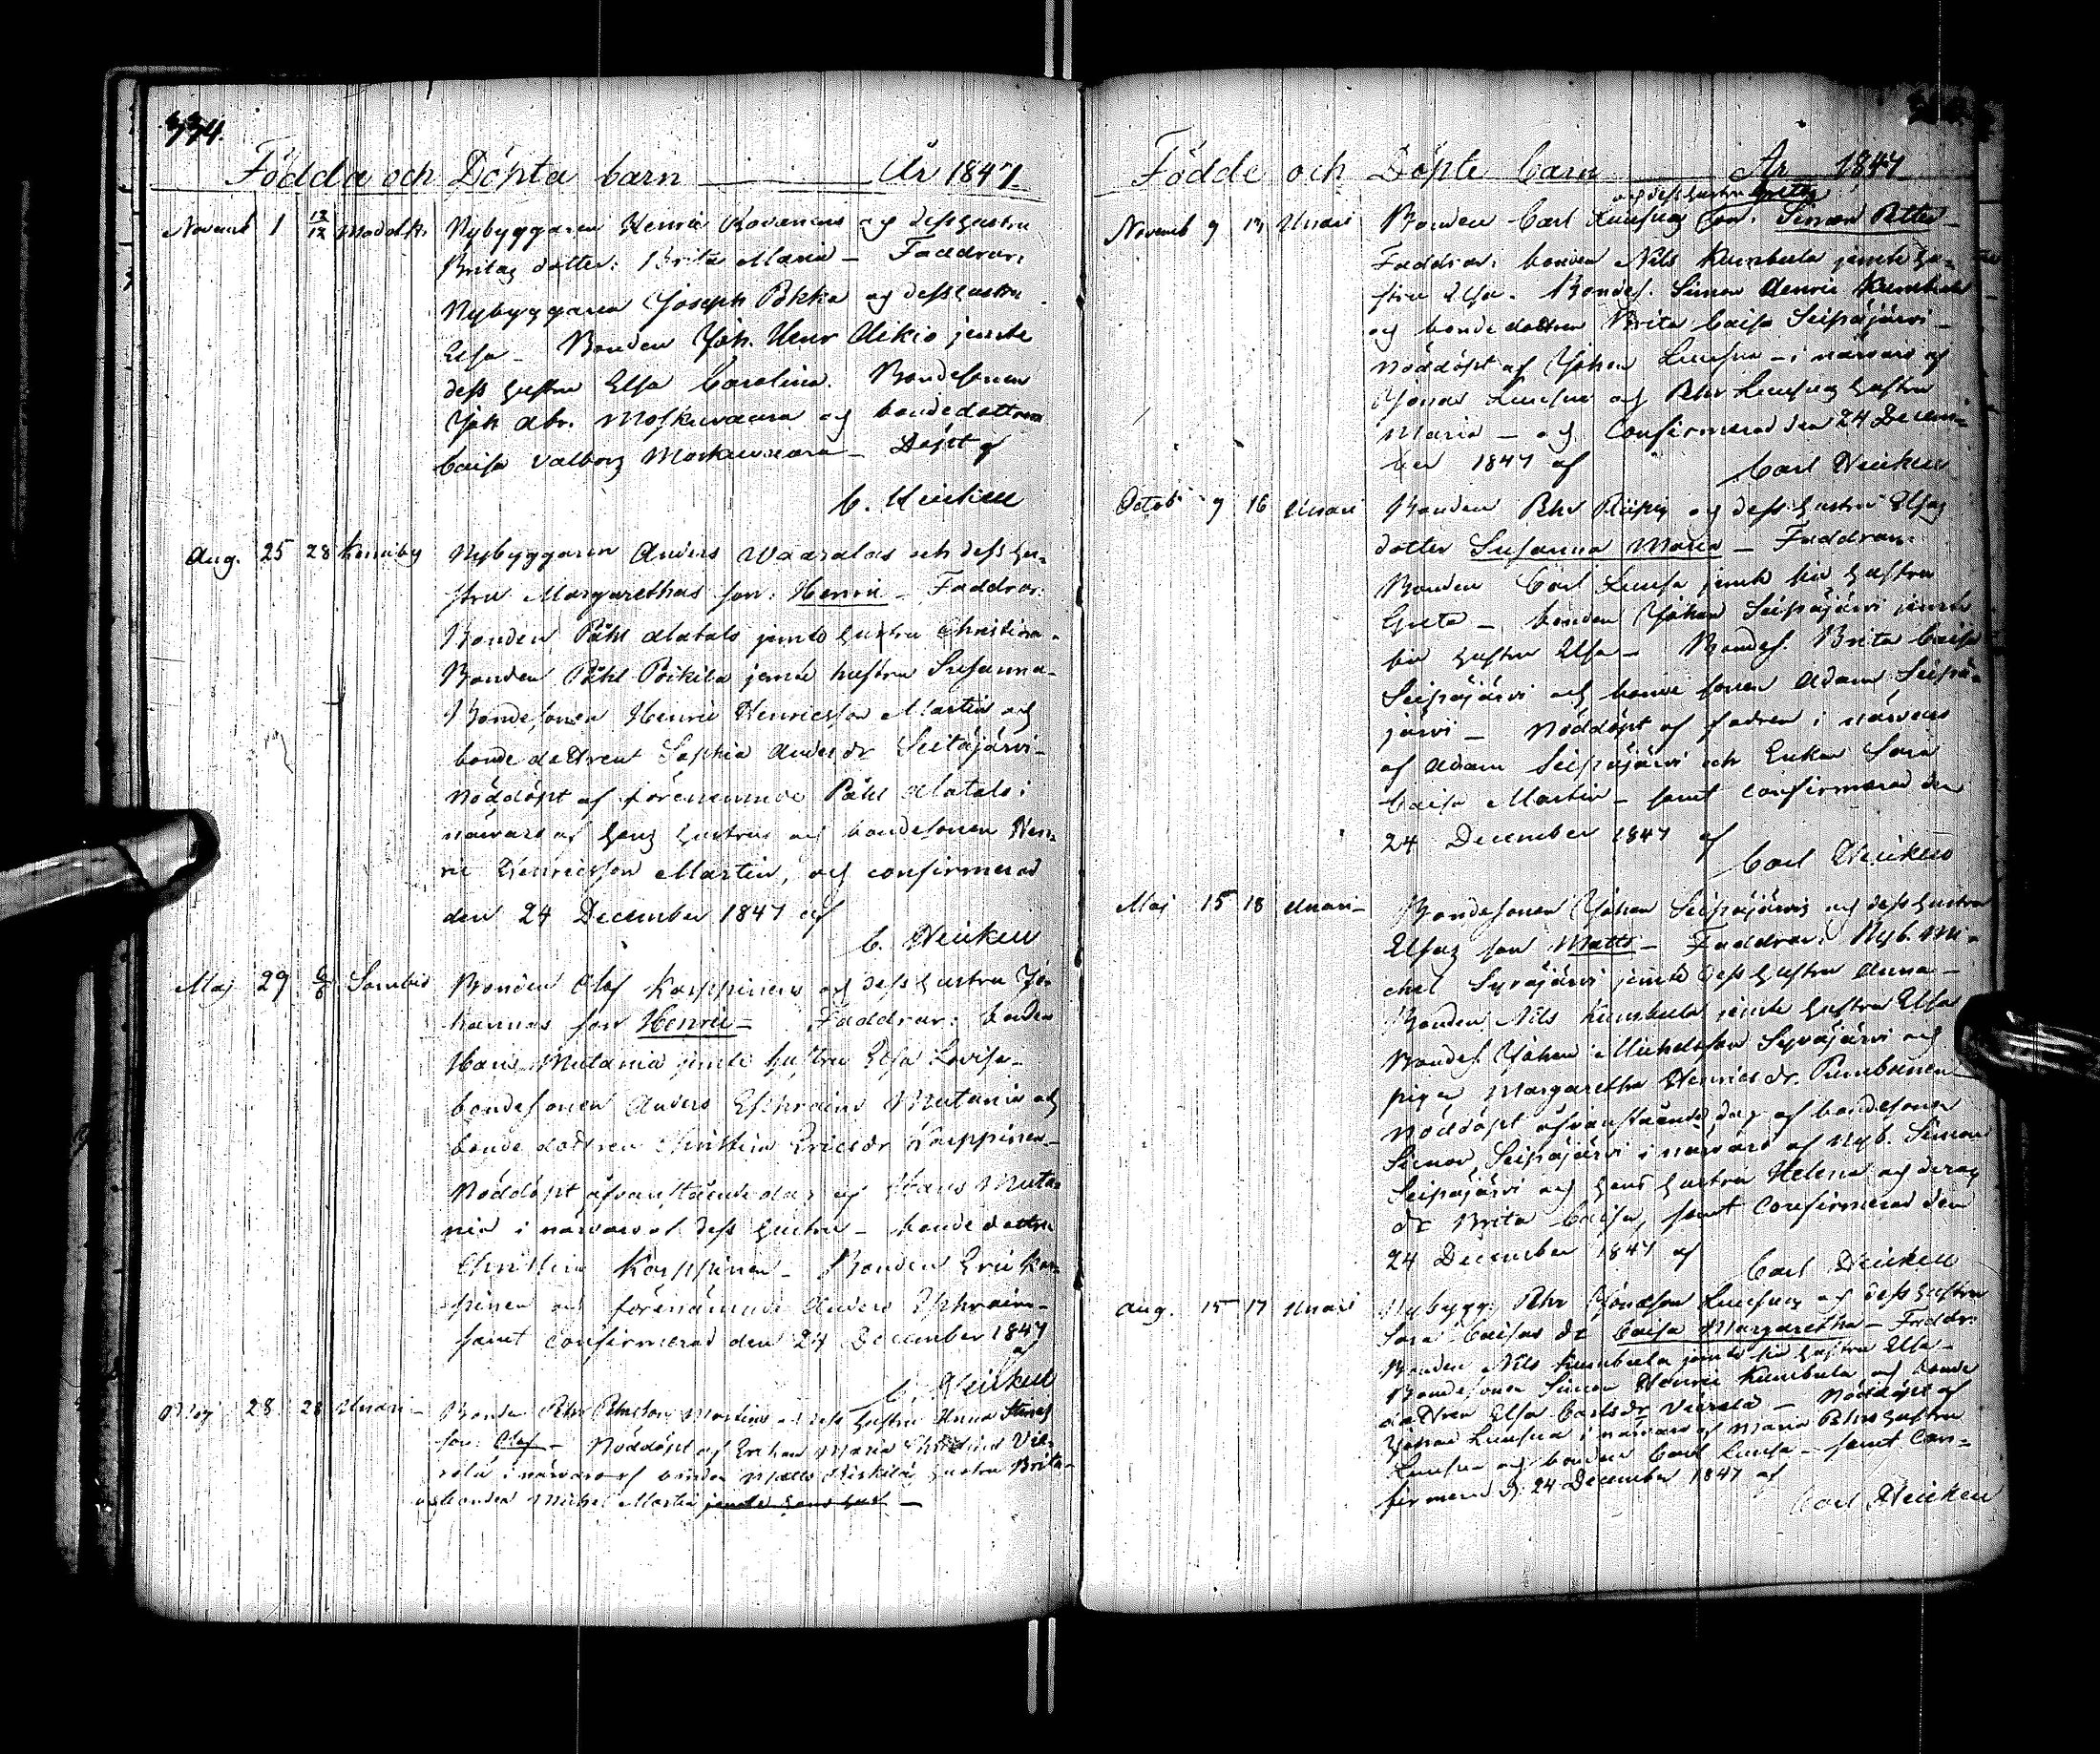 334.
Födda och Döpta barn År 1847.
Novemb 1 12/12 Nybyggaren Henric och dess hustru
Britas dotter: Brita Maria – Faddrar:
Nybyggaren Joseph Pokka och dess hustru
Elsa – Bonden Joh. Henr Aikio jemte
dess hustru Elsa Carolina. Bondesonen
Joh Abr. Moskuvaara och bondedottren
Caisa Valborg Moskuvaara – Döpt af
C. Heiken
Aug. 25 28 Nybyggaren Anders Vaaralas och dess hu-
stru Margarethas son: Henric – Faddrar:
Bonden Påhl Alatalo jemte hustru Christina –
Bonden Påhl Poikela jemte hustru Susanna –
Bondesonen Henric Henricsson Martin och
bondedottren Sophia Andersdr Seitajärvi –
Nöddöpt af förenämnde Påhl Alatalo i
närvaro af hans hustru och bondesonen Hen-
ric Henricsson Martin, och confirmerad
den 24 December 1847 af
C. Heiken
Maj 29 6/6 Sombio Bonden Olof Karppinens och dess hustru Jo-
hannas son Henric – Faddrar: bonden
Hans Mutenia jemte hustru Elsa Lovisa –
bondesonen Anders Ephraim Mutenia och
bondedottren Christina Ericsdr Karppinen –
Nöddöpt ofvanstående dag af Hans Mute-
nia i närvaro af dess hustru – bondedottren
Christina Karppinen – Bonden Eric Kar-
pinen och förenämnde Anders Ephraim –
samt Confirmerad den 24 December 1847
af
C. Heiken
Maj 28 28 Unari – Bonden Pehr Pehrson Martins och dess hustru Anna
son: Olof – Nöddöpt af Enkan Maria
i närvaro af bonden hustru Brita –
och bonden Michel Martin jemte hans hust –
Födde och Döpte barn År 1847
och dess hustru Gretas
Novemb 9 13 Unari Bonden Carl Luusuas son: Simon Petter –
Faddrar: bonden Nils Kumbula jemte hu-
stru Elsa. Bondes. Simon Henric Kumbula
och bondedottren Brita Caisa Seipäjärvi –
Nöddöpt af Johan Luusua – i närvaro af
Jonas Luusua och Pehr Luusuas hustru
Maria – och Confirmerad den 24 Decem-
ber 1847 af Carl Heiken
Octob 9 16 Unari Bonden Pehr och dess hustru Elsas
dotter Susanna Maria – Faddrar:
Bonden Carl Luusua jemte sin hustru
Greta – bonden Johan Seipäjärvi jemte
sin hustru Elsa – Bondes. Brita Caisa
Seipäjärvi och bondesonen Adam Seipä-
järvi – Nöddöpt af fadren i närvaro
af Adam Seipäjärvi och Enkan Sara
Caisa Martin – samt confirmerad den
24 December 1847 af
Carl Heiken
Maj 15 18 Unari – Bondesonen Johan Seipäjärvis och dess hustru
Elsas son Matts – Faddrar: Nyb. Mi-
chel Syväjärvi jemte dess hustru Anna –
Bonden Nils Kumbula jemte hustru Elsa
Bondes. Johan Michelsson Syväjärvi och
pigan Margaretha Henricsdr.
Nöddöpt ofvanstående dag af bondesonen
Simon Seipäjärvi i närvaro af Nyb. Simon
Seipäjärvi och hans hustru Helena och deras
dr Brita Caisa, samt Confirmerad den
24 December 1847 af
Carl Heiken
Aug. 15 17 Unari Nybygg. Pehr Jonasson Luusuas och dess hustru
Sara Caisas dr Caisa Margaretha – Faddr:
Bonden Nils Kumbula jemte sin hustru Elsa –
Bondesonen Simon Henric Kumbula och bonde
dottren Elsa Carlsdr – Nöddöpt af
Johan Luusua i närvaro af Maria Pehrs hustru
Luusua och bonden Carl Luusua – samt Con-
firmerad d. 24 December 1847 af
Carl Heiken